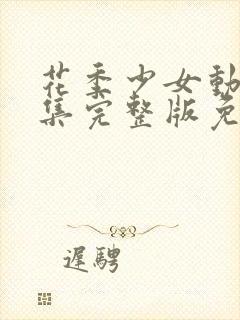 花季少女動
集完整版免
遲騁